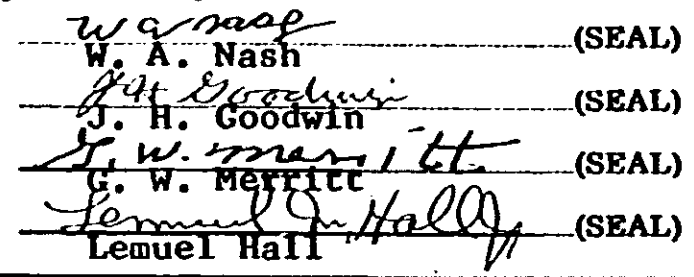 W A Nash (SEAL)
W. A. Nash
J H Goodwin (SEAL)
J. H. Goodwin
G. W. Merritt (SEAL)
G. W. Merritt
Lemuel M. Hall Jr (SEAL)
Lemuel Hall